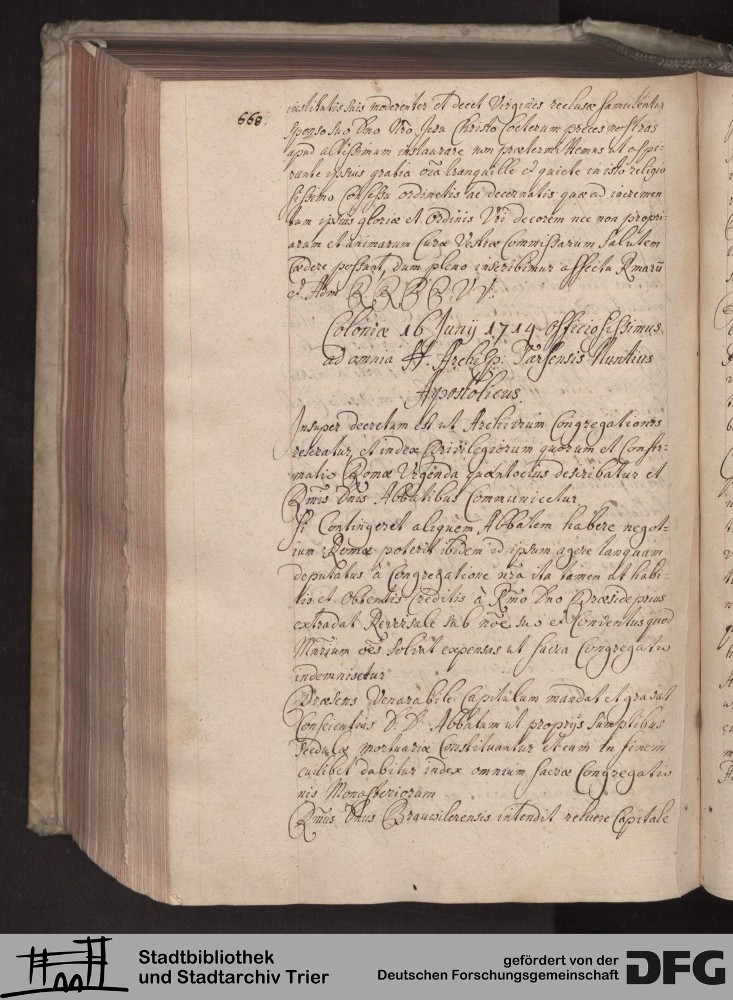 668.
institutis suis moderenter et decet Virgines reclusæ famulentur
sponso suo Dno Nro Jesu Christo Cœterum preces nostras
apud altissimum instaurare non prætermittemus ut aspi:
rante ipsius gratia oīa tranquille et quiete in isto religio
sissimo Consessu ordinetis ac decernatis quæ ad incremen
tum ipsius gloriæ et Ordinis Vri decorem nec non propri:
arum et animarum Curæ Vestræ Commissarum Salutem
Cædere possunt, dum pleno inscribimur affectu Rmarū
et Adm R R P P V V.
Coloniæ 16 Junij 1714 officiosissimus
ad omnia H. Archiep. Tarsensis Nuntius
Apostolicus.
Insuper decretum est ut Archivium Congregationis
reseratur, et index Privilegiorum quorum et Confir:
matio Romæ Urgenda quantocius describatur et
Rmis Dnis Abbatibus Communicetur
Si Contingeret aliquem Abbatem habere negot=
ium Romæ poterit ibidem id ipsum agere tanquam
deputatus à Congregatione nrā ita tamen ut habi:
tis et Obtentis Creditis à Rmo Dno Præside prius
extradat Reversale sub noīe suo et Conventus quod
Mnrium oēs solvat expensas ut sacra Congregatio
indemnisetur
Præsens Venerabile Capitulum mandat et gravat
Conscientias D. D. Abbatum ut proprijs sumptibus
Scedulæ mortuariæ Constituantur et eum in finem
cuilibet dabitur index omnium sacræ Congregatio
nis Monasteriorum
Rmus Dnus Brauwilerensis intendit reluere Capitale
Stadtbibliothek
und Stadtarchiv Trier
gefördert von der
Deutschen Forschungsgemeinschaft
DFG